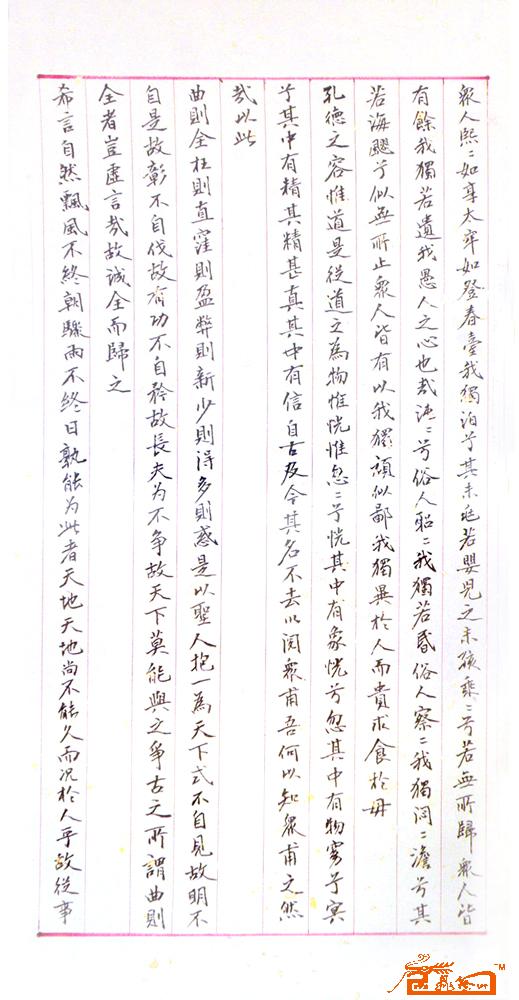 衆人熙〻如享太牢如登春臺我獨泊兮其未兆若嬰兒之未孩乘〻兮若無所歸衆人皆
有餘我獨若遺我愚人之心也哉沌〻兮俗人昭〻我獨若昏俗人察〻我獨悶〻澹兮其
若海飂兮似無所止衆人皆有以我獨頑似鄙我獨異於人而貴求食於母
孔德之容惟道是從道之為物惟恍惟忽〻兮恍其中有象恍兮忽其中有物窈兮冥
兮其中有精其精甚真其中有信自古及今其名不去以閱衆甫吾何以知衆甫之然
哉以此
曲則全枉則直窪則盈弊則新少則得多則惑是以聖人抱一為天下式不自見故明不
自是故彰不自伐故有功不自矜故長夫為不爭故天下莫能與之爭古之所謂曲則
全者豈虛言哉故誠全而歸之
希言自然飄風不終朝驟雨不終日孰能為此者天地天地尚不能久而況於人乎故從事
TM